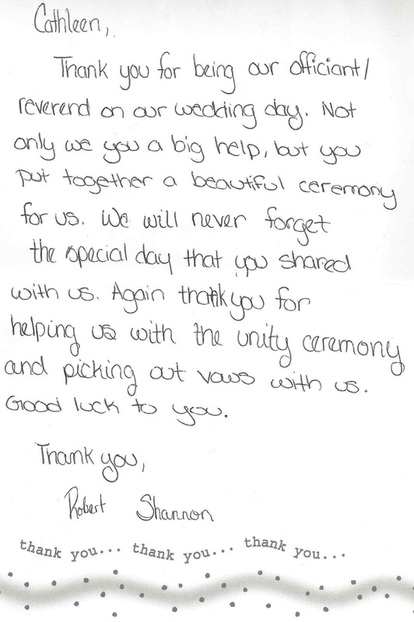 Cathleen,
Thank you for being our officiant/
reverend on our wedding day. Not
only we you a big help, but you
put together a beautiful ceremony
for us. We will never forget
the special day that you shared
with us. Again thank you for
helping us with the unity ceremony
and picking out vows with us.
Good luck to you.
Thank you,
Robert Shannon
thank you... thank you... thank you...